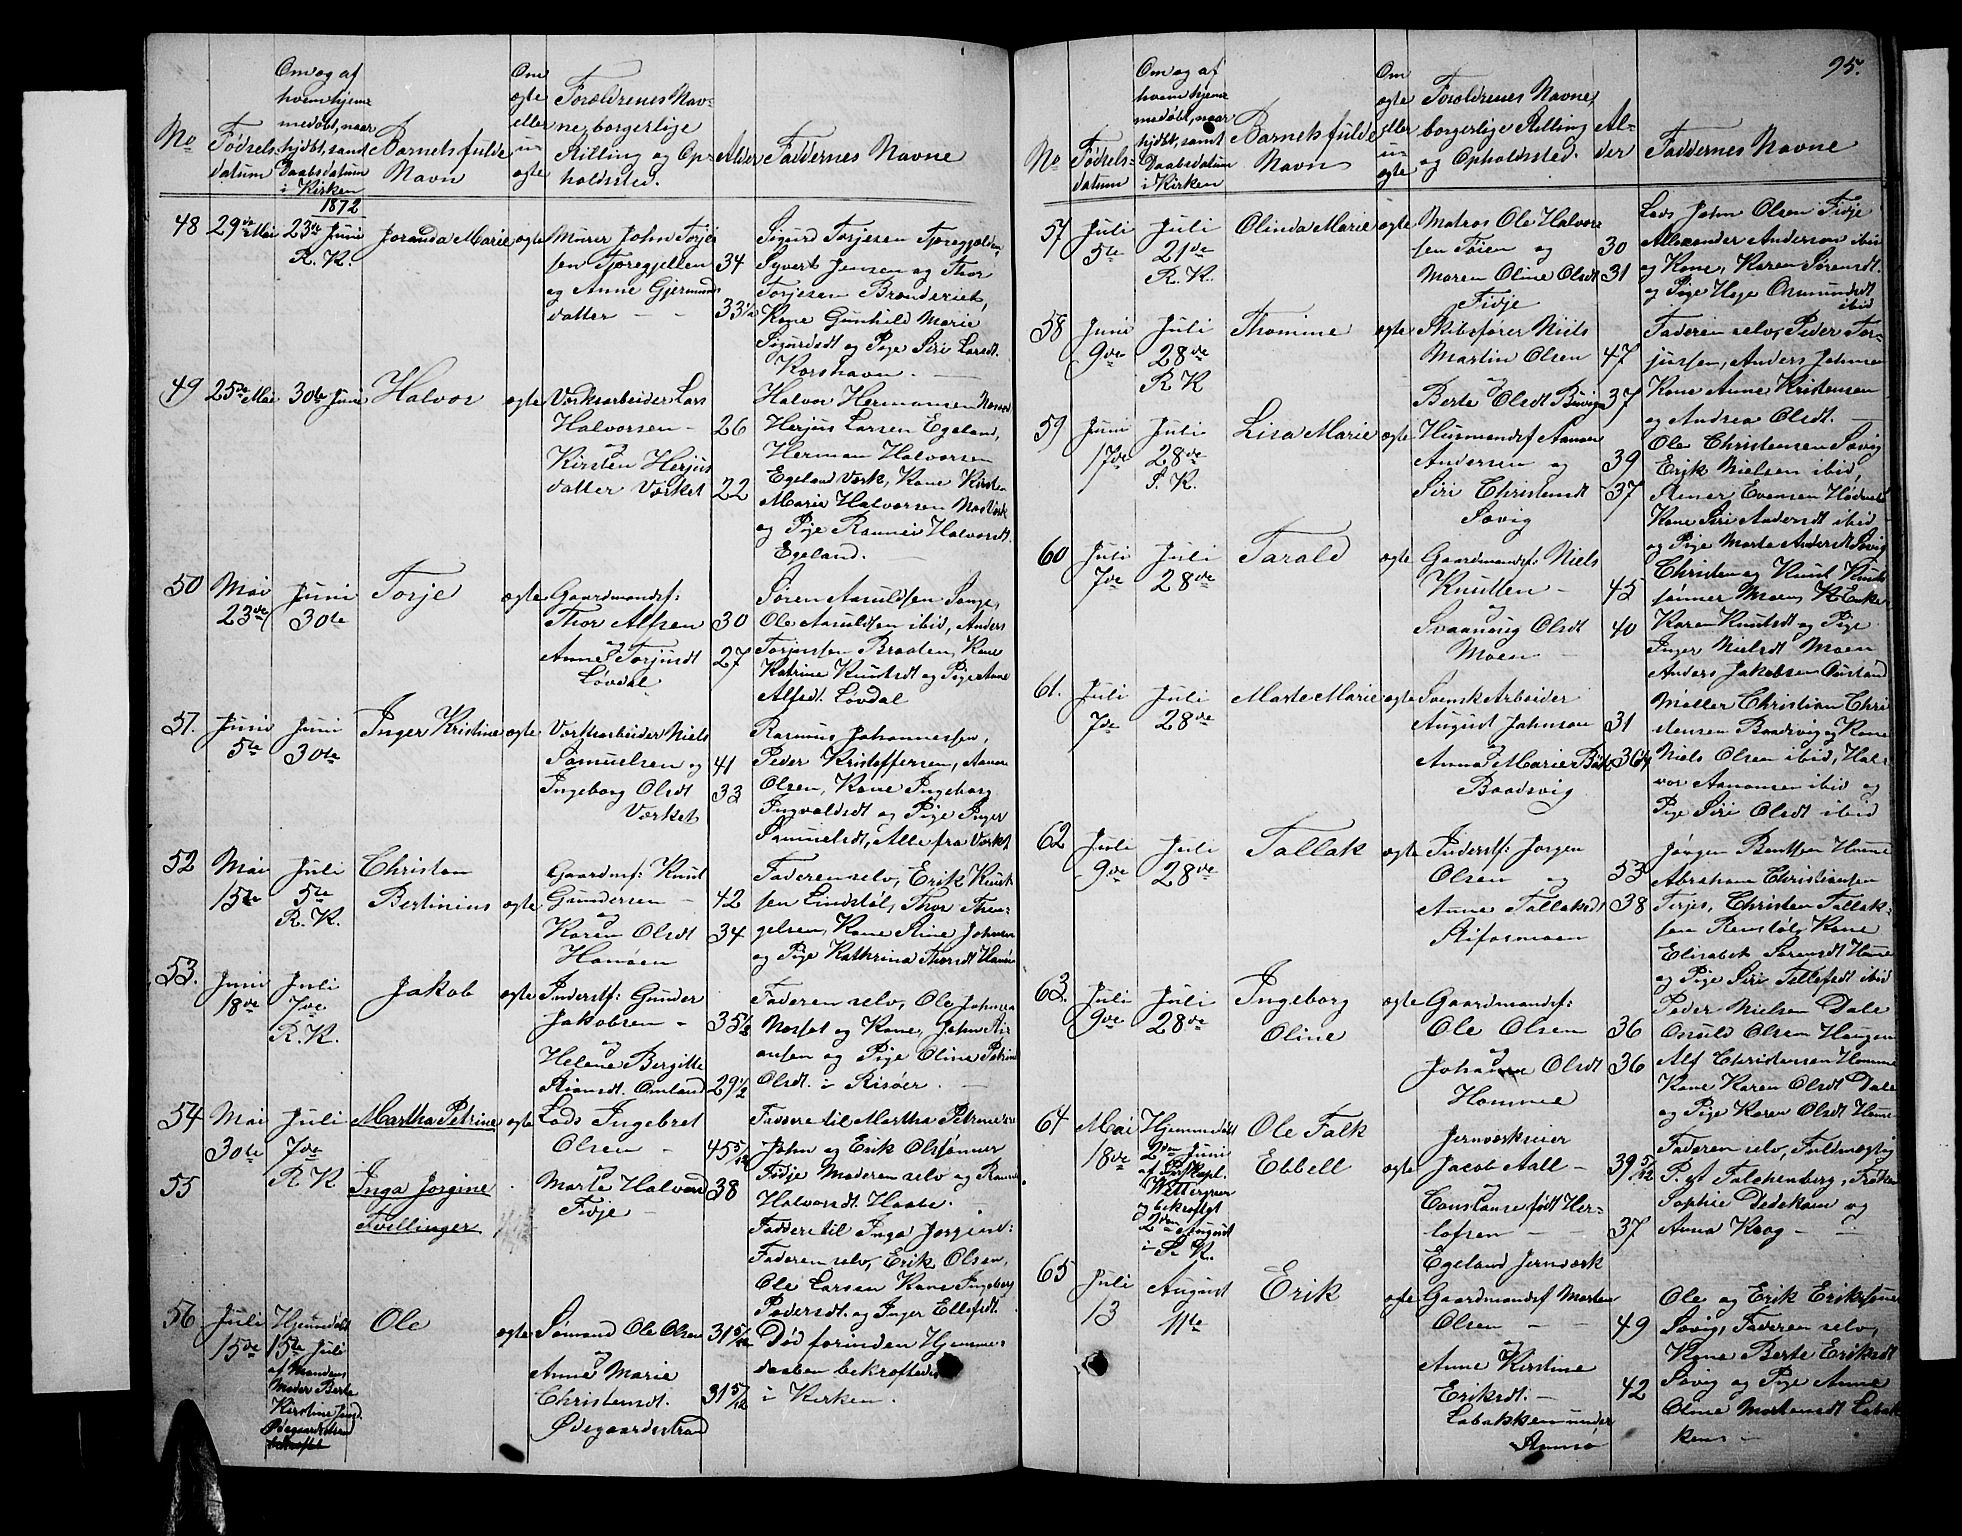 95.
No
Fødsels-
datum
Om og af
hvem hjem-
medøbt, naar
hjdbt, samt
Daabsdatum
i Kirken
Barnets fulde
Navn
Om
ægte
eller
u-
ægte
Forældrenes Nav-
ne, borgerlige
Stilling og Op-
holdssted.
Alder
Faddernes Navne
1872
48 29de Mai 23de Juni Joranda Marie ægte
R. K.
Murer John Torjes
sen Tjoregjellen 34
og Anne Gjermunds
datter — — 33 1/2
Sigurd Torjesen
Syvert Jensen og Thor
Torjesen
Kone Gunhild Marie
Sigurdsdt og Pige Siri Larsdt.
Korshavn. —
49 25de Mai 30te Juni Halvor ægte
Værksarbeider Lars
Halvorsen — 26
og
Kirsten Herjus
datter Værket 22
Halvor Hermansen
Herjus Larsen Egeland,
Herman Halvorsen
Egeland Værk, Kone Kirsten
Marie Halvorsen Næs Værk
og Pige Rannei Halvorsdt.
Egeland. —
50 Mai 23de Juni 30te Torje ægte
Gaardmandsf:
Thor Alfsen 30
og
Anne Torjusdt 27
Løvdal
Søren Aasuldsen Songe,
Ole Aasuldsen ibid, Anders
Torjussen Braaten, Kone
Katrine Knutsdt og Pige Anne
Alfsdt. Løvdal
51. Juni 5te Juni 30te Inger Kristine ægte
Værksarbeider Niels
Samuelsen og 41
Ingeborg Olsdt 33
Værket
Rasmus Johannessen,
Peder Kristoffersen, Aanon
Olsen, Kone Ingeborg
Ingvaldsdt og Pige Inger
Samuelsdt, Alle fra Værket
52 Mai 15de Juli 5te R. K. Christen
Bertinius ægte
Gaardmf: Knut
Gundersen — 42
og
Karen Olsdt 34
Hanøen
Faderen selv, Erik Knut-
sen Lindstøl, Thor Thren-
gelsen, Kone Stine Johnsen
og Pige Kathrina Thorsdt
53. Juni 18de Juli 7de R. K. Jakob ægte
Inderstf: Gunder
Jakobsen — 35 1/2
og
Helene Bergitte
Omland 29 1/2
Faderen selv, Ole Johnsen
og Kone, John
og Pige Oline Petrine
Olsdt. i Risøer. —
54 Mai 30te Juli 7de R. K. Martha Petrine ægte
Lods Ingebret
Olsen — 45 5/12
og
55 Inga Jorgine
Tvillinger
Marte Halvorsd 38
Fidje —
Faddere til Martha Petrine
John og Erik Olssønner
Fidje Moderen selv og
Halvorsdt.
Faddere til Inga Jorgine:
Faderen selv, Erik Olsen,
Ole Larsen Kone Ingeborg
Pedersdt. og Inger Ellefsdt.
56 Juli 15de Hjemmdøbt
15te Juli
af Mandens
Moder Berte
Kirstine
Ødegaardstrand
Ole ægte
Sømand Ole Olsen 31 5/12
og
Anne Marie
Christensdt. 31 5/12
Ødegaardsstrand
Død forinden Hjemme-
daaben bekræftedes
i Kirken.
No
Fødsels-
datum
Om og af
hvem hjem-
medøbt, naar
hjdbt, samt
Daabsdatum
i Kirken
Barnets fulde
Navn
Om
ægte
eller
u-
ægte
Forældrenes Navne,
borgerlige Stilling
og Opholdssted.
Al-
der
Faddernes Navne
57 Juli 5te Juli 21de R. K. Olinda Marie ægte
Matros Ole Halvor
sen Tøien og 30
Maren Oline Olsdt 31
Fidje
Lods John Olsen Fidje
Alexander Anderson ibid
og Kone, Karen Sørensdt.
og Pige Osmundsdt
ibid
58 Juni 9de Juli 28de R. K Thomine ægte
Skibsfører Niels
Martin Olsen 47
og
Berte Olsdt 37
Faderen selv, Peder Tor-
jussen, Anders Johnsen
Kone Anne Kristensen
og Andrea Olsdt. —
59 Juni 17de Juli 28de S. K. Lisa Marie ægte
Husmandsf Aanon
Andersen og 39
Siri Christensdt 37
Søvig
Ole Christensen Søvig
Erik Nielsen ibid,
Stener Evensen
Kone Siri Andersdt ibid
og Pige Marte Andersdt Søvig
60 Juli 7de Juli 28de Tarald ægte
Gaardmandsf: Niels
Knutsen — 45
og
Svaanaug Olsdt 40
Moen —
Christen og Knut Knut-
sønner Moen,
Karen Knutsdt og Pige
Inger Nielsdt Moen
61. Juli 7de Juli 28de Marte Marie ægte
Svensk Arbeider
August Johnson 31
og
Anna Marie 36
Baadsvig
Anders Jakobsen
Møller Christian Chri
stensen Baadsvig og Kone
Niels Olsen ibid, Hal-
vor Aanonsen ibid og
Pige Siri Olsdt ibid
62 Juli 9de Juli 28de Tallak ægte
Inderstf: Jørgen
Olsen og 53
Anne Tallaksdt 38
Stifosmoen
Jørgen Bentsen Humme
Abraham Christiansen
Christen Tallak-
sen Rønstøl, Kone
Elisabeth Sørensdt Humme
og Pige Siri Tellefsdt ibid
63. Juli 9de Juli 28de Ingeborg
Oline ægte
Gaardmandsf:
Ole Olsen 36
og
Johanne Olsdt 36
Homme
Peder Nielsen Dale
Osuld Olsen Haugen
Alf Christensen Homme
Kone Karen Olsdt Dale
og Pige Karen Olsdt Homme
64 Mai 18de Hjemmedøbt
2den Juni
af
Wettergreen
og bekræftet
2den August
i S. K.
Ole Falk
Ebbell ægte
Jernværkseier
Jacob Aall — 39 5/12
og
Constanse født Her-
lofsen — — 37
Egeland Jernværk
Faderen selv, Fuldmægtig
P. Falchenberg, Frøken
Sophie Dedekam og
Anna Krog — —
65 Juli 13 August 11te Erik ægte
Gaardmandsf Morten
Olsen — — 49
og
Anne Kirstine
Eriksdt. — 42
Labakken under
Ole og Erik Erikssønner
Søvig, Faderen selv,
Kone Berte Eriksdt
Søvig og Pige Anne
Oline Mortensdt Labak
ken —